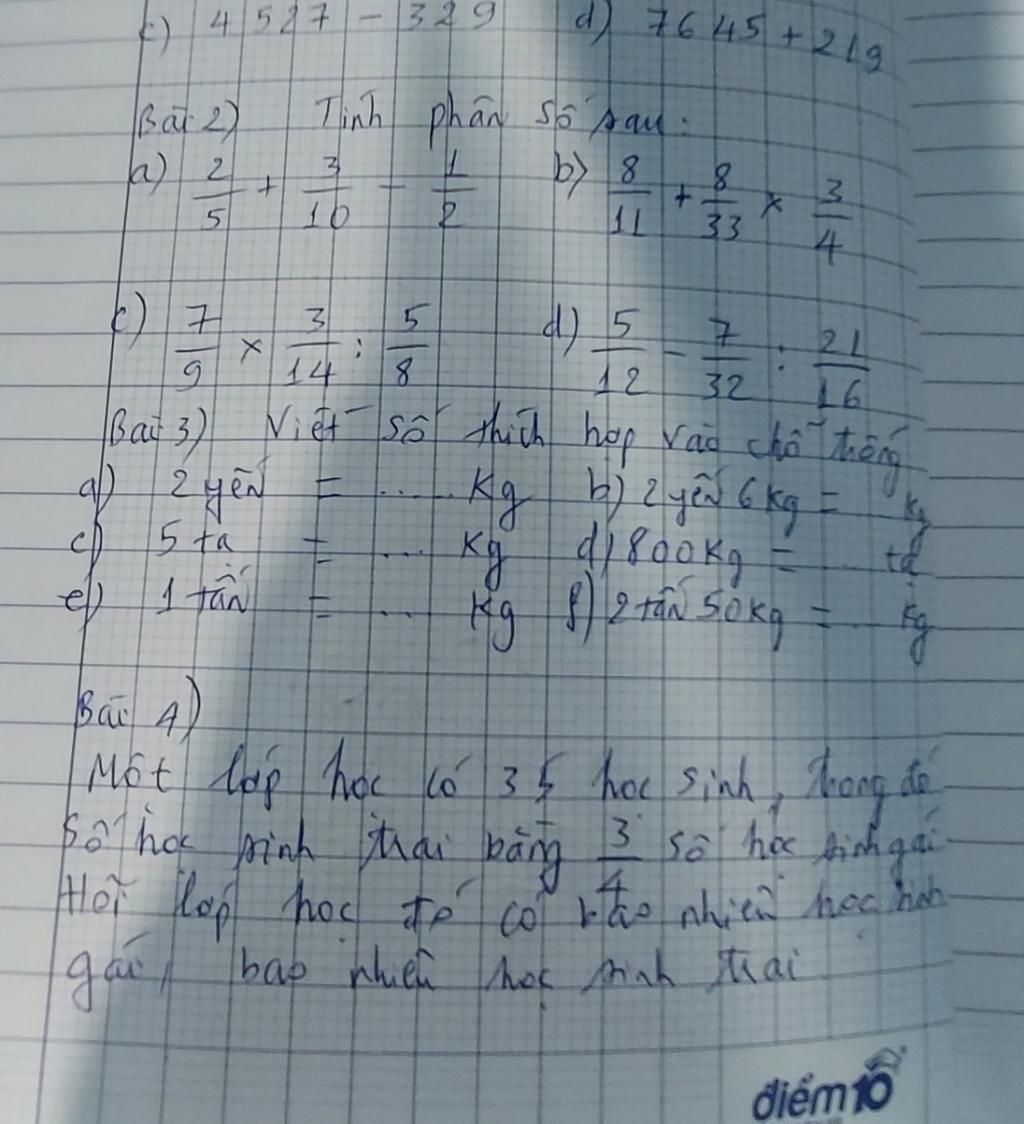 c) 4527 - 329 d) 7645 + 219
Bài 2) Tính phân số sau:
a) 2/5 + 3/10 - 1/2 b) 8/11 + 8/33 × 3/4
c) 7/9 × 3/14 : 5/8 d) 5/12 - 7/32 : 21/16
Bài 3) Viết số thích hợp vào chỗ trống
a) 2 yến = ..... Kg b) 2 yến 6 kg = kg
c) 5 tạ = ... Kg d) 800 Kg = ... tạ
e) 1 tấn = ... Kg f) 2 tấn 50 kg = ... kg
Bài 4)
Một lớp học có 35 học sinh, trong đó
số học sinh trai bằng 3/4 số học sinh gái
Hỏi lớp học đó có bao nhiêu học sinh
gái, bao nhiêu học sinh trai
điểm 10